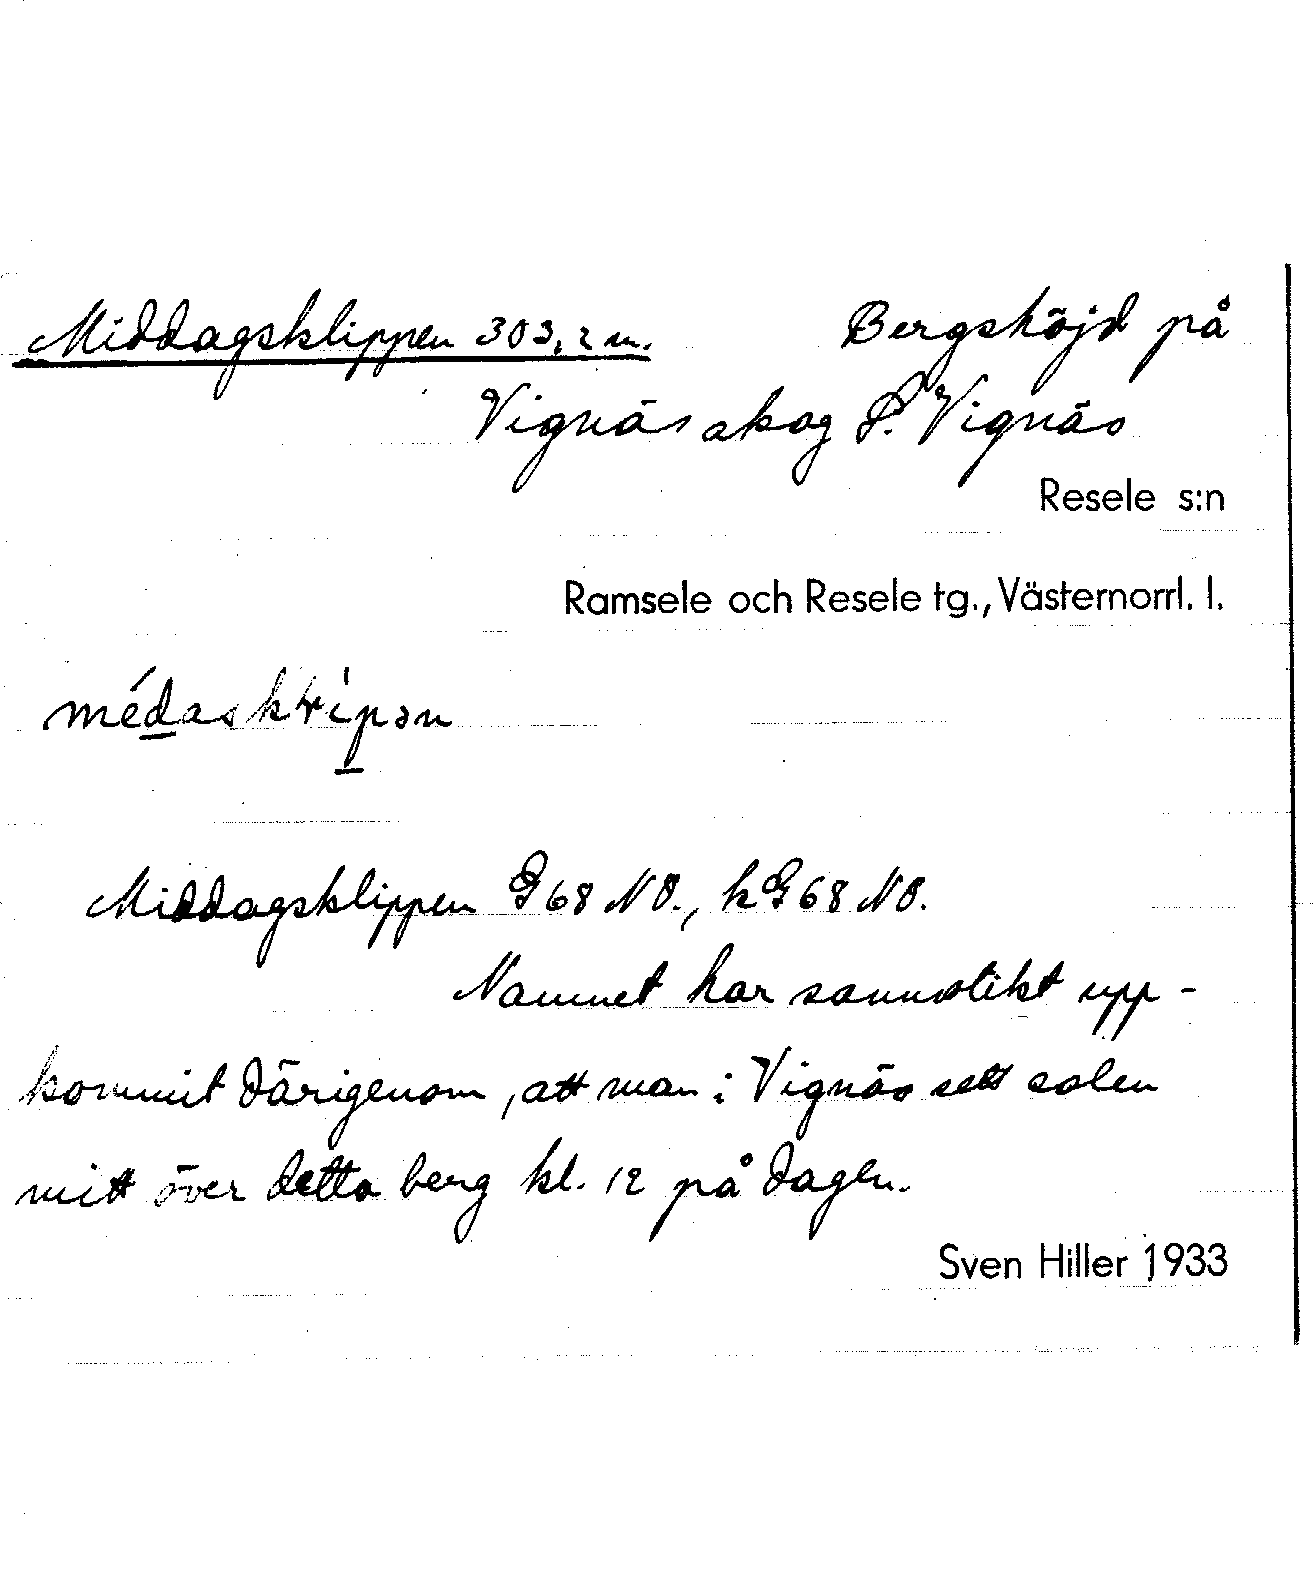 Middagsklippen 303,2 m. Bergshöjd på
Vignäs skog S. Vignäs
Resele s:n
Ramsele och Resele tg., Västernorrl. l.
Middagsklippen G 68 NO., kG 68 NO.
Namnet har sannolikt upp-
kommit därigenom, att man i Vignäs sett solen
mitt över detta berg kl. 12 på dagen.
Sven Hiller 1933